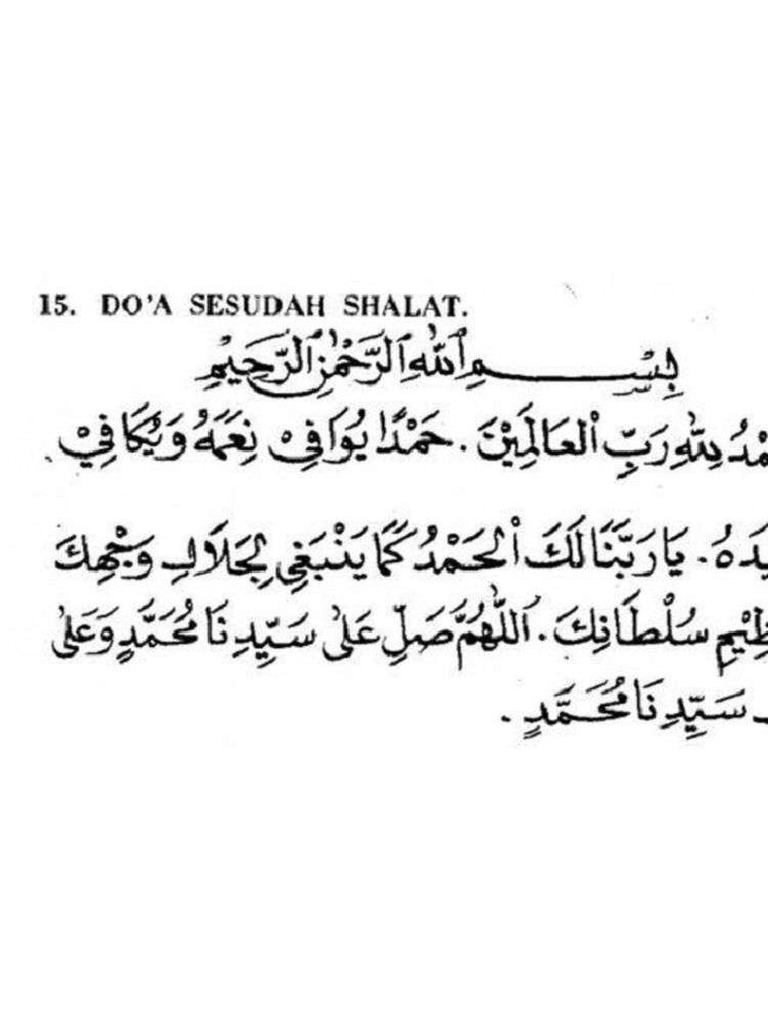 15. DO'A SESUDAH SHALAT.
بِسْمِ اللهِ الرَّحْمٰنِ الرَّحِيْمِ
لِلّٰهِ رَبِّ الْعَالَمِيْنَ. حَمْدًا يُوَافِيْ نِعَمَهُ وَيُكَافِيْ
يَا رَبَّنَا لَكَ الْحَمْدُ كَمَا يَنْبَغِيْ لِجَلَالِ وَجْهِكَ
سُلْطَانِكَ. اَللّٰهُمَّ صَلِّ عَلٰى سَيِّدِنَا مُحَمَّدٍ وَعَلٰى
سَيِّدِنَا مُحَمَّدٍ.